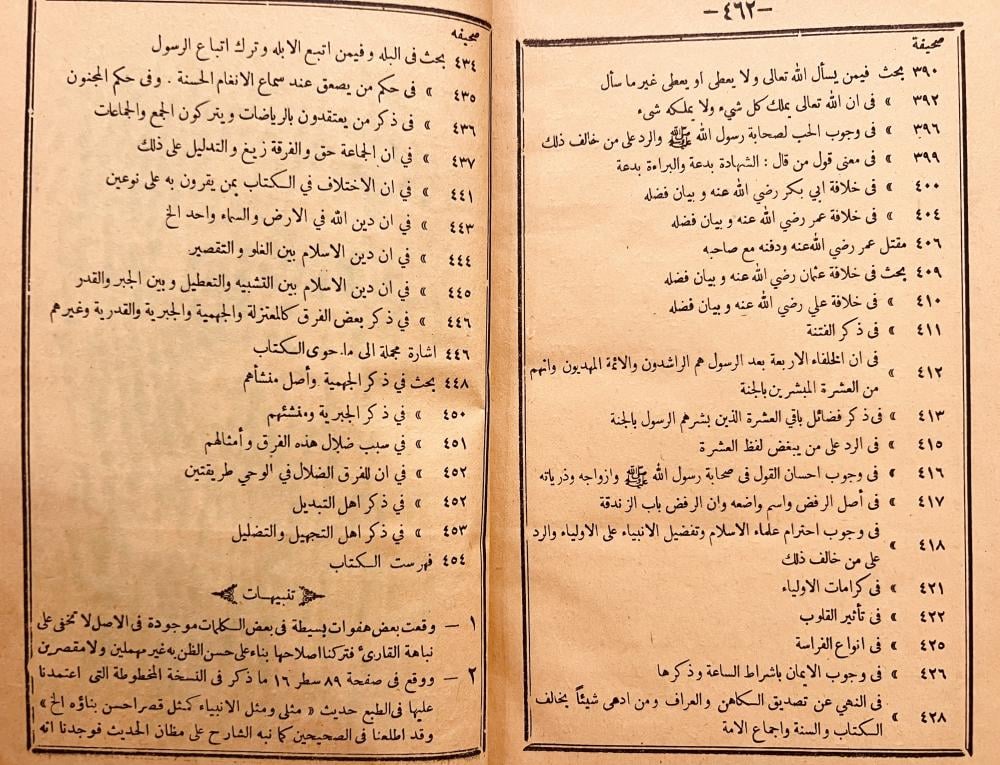 —٤٦٢—
صحيفة
٣٩٠ بحث فيمن يسأل الله تعالى ولا يعطى او يعطى غير ما سأل
٣٩٢ » فى ان الله تعالى يملك كل شيء ولا يملكه شىء
٣٩٦ » فى وجوب الحب لصحابة رسول الله ﷺ والرد على من خالف ذلك
٣٩٩ » فى معنى قول من قال : الشهادة بدعة والبراءة بدعة
٤٠٠ » فى خلافة ابي بكر رضي الله عنه و بيان فضله
٤٠٤ » فى خلافة عمر رضي الله عنه و بيان فضله
٤٠٦ مقتل عمر رضي الله عنه ودفنه مع صاحبه
٤٠٩ بحث فى خلافة عثمان رضي الله عنه و بيان فضله
٤١٠ » فى خلافة علي رضي الله عنه و بيان فضله
٤١١ » فى ذكر الفتنة
٤١٢ » فى ان الخلفاء الاربعة بعد الرسول هم الراشدون والائمة المهديون وانهم
من العشرة المبشرين بالجنة
٤١٣ » فى ذكر فضائل باقي العشرة الذين بشرهم الرسول بالجنة
٤١٥ » فى الرد على من يبغض لفظ العشرة
٤١٦ » فى وجوب احسان القول فى صحابة رسول الله ﷺ وازواجه وذرياته
٤١٧ » فى أصل الرفض واسم واضعه وان الرفض باب الزندقة
٤١٨ » فى وجوب احترام علماء الاسلام وتفضيل الانبياء على الاولياء والرد
على من خالف ذلك
٤٢١ » فى كرامات الاولياء
٤٢٢ » فى تأثير القلوب
٤٢٥ » فى انواع الفراسة
٤٢٦ » فى وجوب الايمان باشراط الساعة وذكرها
٤٢٨ » فى النهي عن تصديق الكاهن والعراف ومن ادعى شيئاً يخالف
الكتاب والسنة واجماع الامة
صحيفه
٤٣٤ بحث فى البله وفيمن اتبع الابله وترك اتباع الرسول
٤٣٥ » فى حكم من يصعق عند سماع الانغام الحسنة . وفى حكم المجنون
٤٣٦ » فى ذكر من يعتقدون بالرياضات ويتركون الجمع والجماعات
٤٣٧ » في ان الجماعة حق والفرقة زيغ والتدليل على ذلك
٤٤١ » في ان الاختلاف في الكتاب بمن يقرون به على نوعين
٤٤٣ » في ان دين الله في الارض والسماء واحد الخ
٤٤٤ » في ان دين الاسلام بين الغلو والتقصير
٤٤٥ » في ان دين الاسلام بين التشبيه والتعطيل و بين الجبر والقدر
٤٤٦ » في ذكر بعض الفرق كالمعتزلة والجهمية والجبرية والقدرية وغيرهم
٤٤٦ اشارة مجملة الى ما حوى الكتاب
٤٤٨ بحث في ذكر الجهمية وأصل منشأهم
٤٥٠ » في ذكر الجبرية ومنشئهم
٤٥١ » في سبب ضلال هذه الفرق وأمثالهم
٤٥٢ » في ان للفرق الضلال في الوحي طريقتين
٤٥٢ » في ذكر اهل التبديل
٤٥٣ » في ذكر اهل التجهيل والتضليل
٤٥٤ فهرست الكتاب
تنبيهات
١ — وقعت بعض هفوات بسيطة فى بعض الكلمات موجودة فى الاصل لا تخفى على
نباهة القارئ فتركنا اصلاحها بناء على حسن الظن به غير مهملين ولا مقصرين
٢ — ووقع فى صفحة ٨٩ سطر ١٦ ما ذكر فى النسخة المخطوطة التى اعتمدنا
عليها فى الطبع حديث « مثلى ومثل الانبياء كمثل قصر احسن بناؤه الخ »
وقد اطلعنا فى الصحيحين كما نبه الشارح على مظان الحديث فوجدنا انه